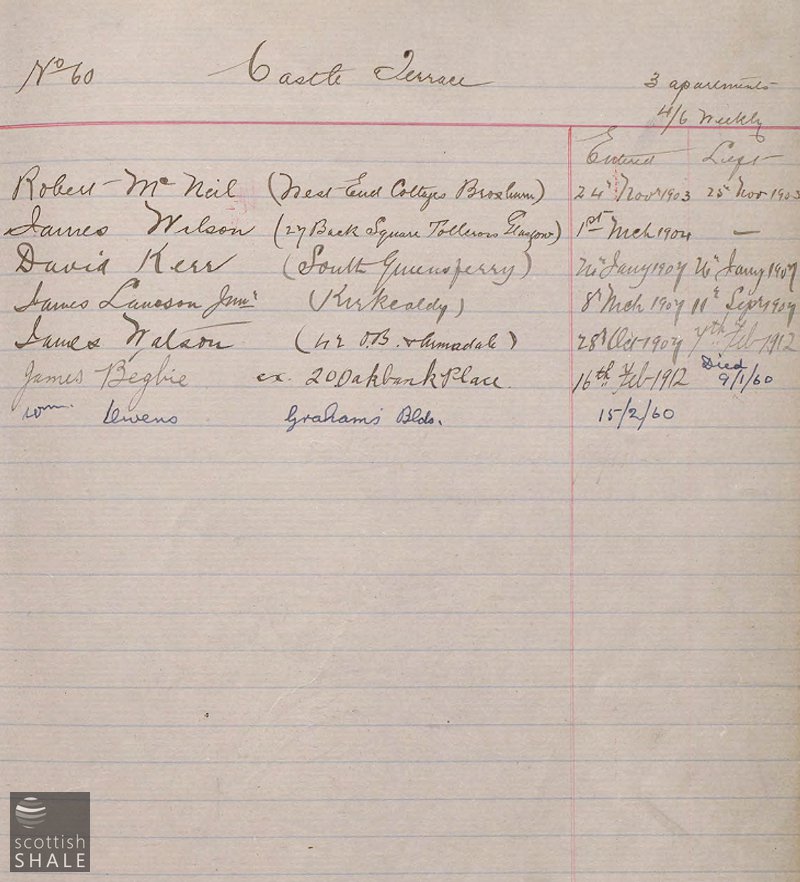 No 60 Castle Terrace 3 apartments
4/6 Weekly
Entered Left
Robert McNeil (West End Cottages Broxburn) 24th Novr 1903 25th Nov 1903
James Wilson (27 Back Square Tollcross Glasgow) 1st Mch 1904 —
David Kerr (South Queensferry) Jany 1907 Jany 1907
James Lawson Junr (Kirkcaldy) 8th Mch 1907 11th Sept 1907
James Watson (42 O.B. Armadale) 28th Oct 1907 7th Feb 1912
James Begbie ex. 20 Oakbank Place. 16th Feb 1912 Died 9/1/60
Wm. Owens Grahams Blds. 15/2/60
scottish
SHALE